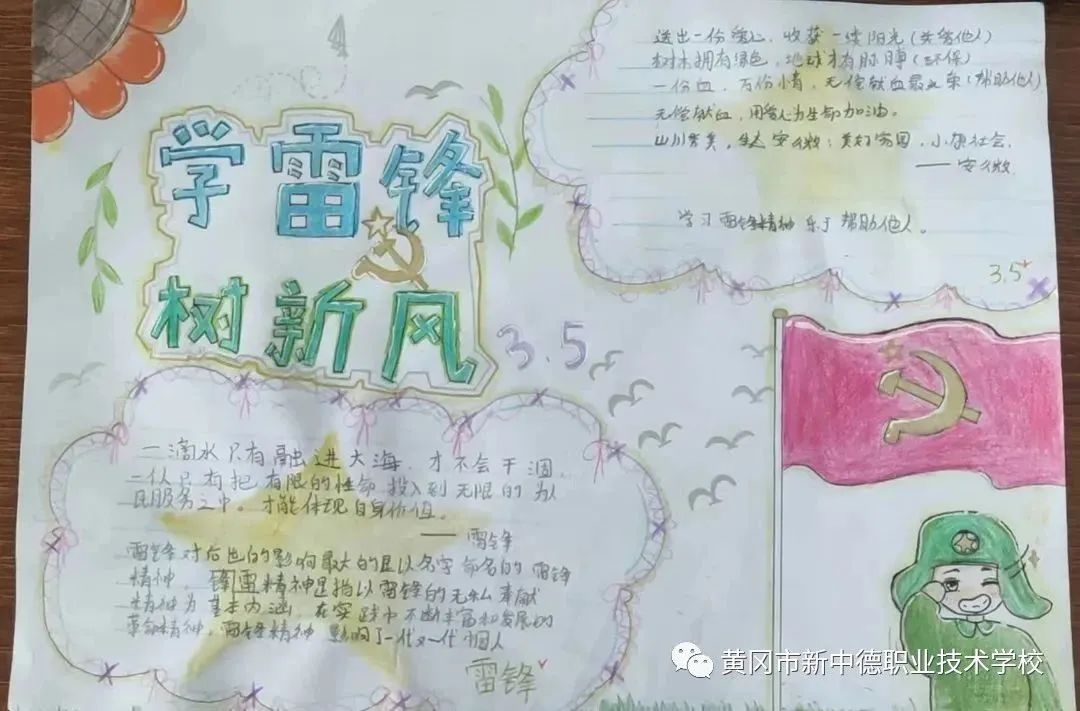 学雷锋
树新风
3.5
送出一份爱心，收获一缕阳光（关爱他人）
树木拥有绿色，地球才有脉搏（环保）
一份血，万份情，无偿献血最光荣（帮助他人）
无偿献血，用爱心为生命加油。
山川秀美，生态安徽；美好家园，小康社会。
——安徽
学习雷锋精神 乐于帮助他人。
3.5
一滴水只有融进大海，才不会干涸，
一个人只有把有限的性命投入到无限的为人
民服务之中。才能体现自身价值。
——雷锋
雷锋对后世的影响最大的是以名字命名的雷锋
精神，锋雷精神是指以雷锋的无私奉献
精神为基本内涵，在实践中不断丰富和发展的
革命精神，雷锋精神 影响了一代又一代中国人
雷锋
黄冈市新中德职业技术学校